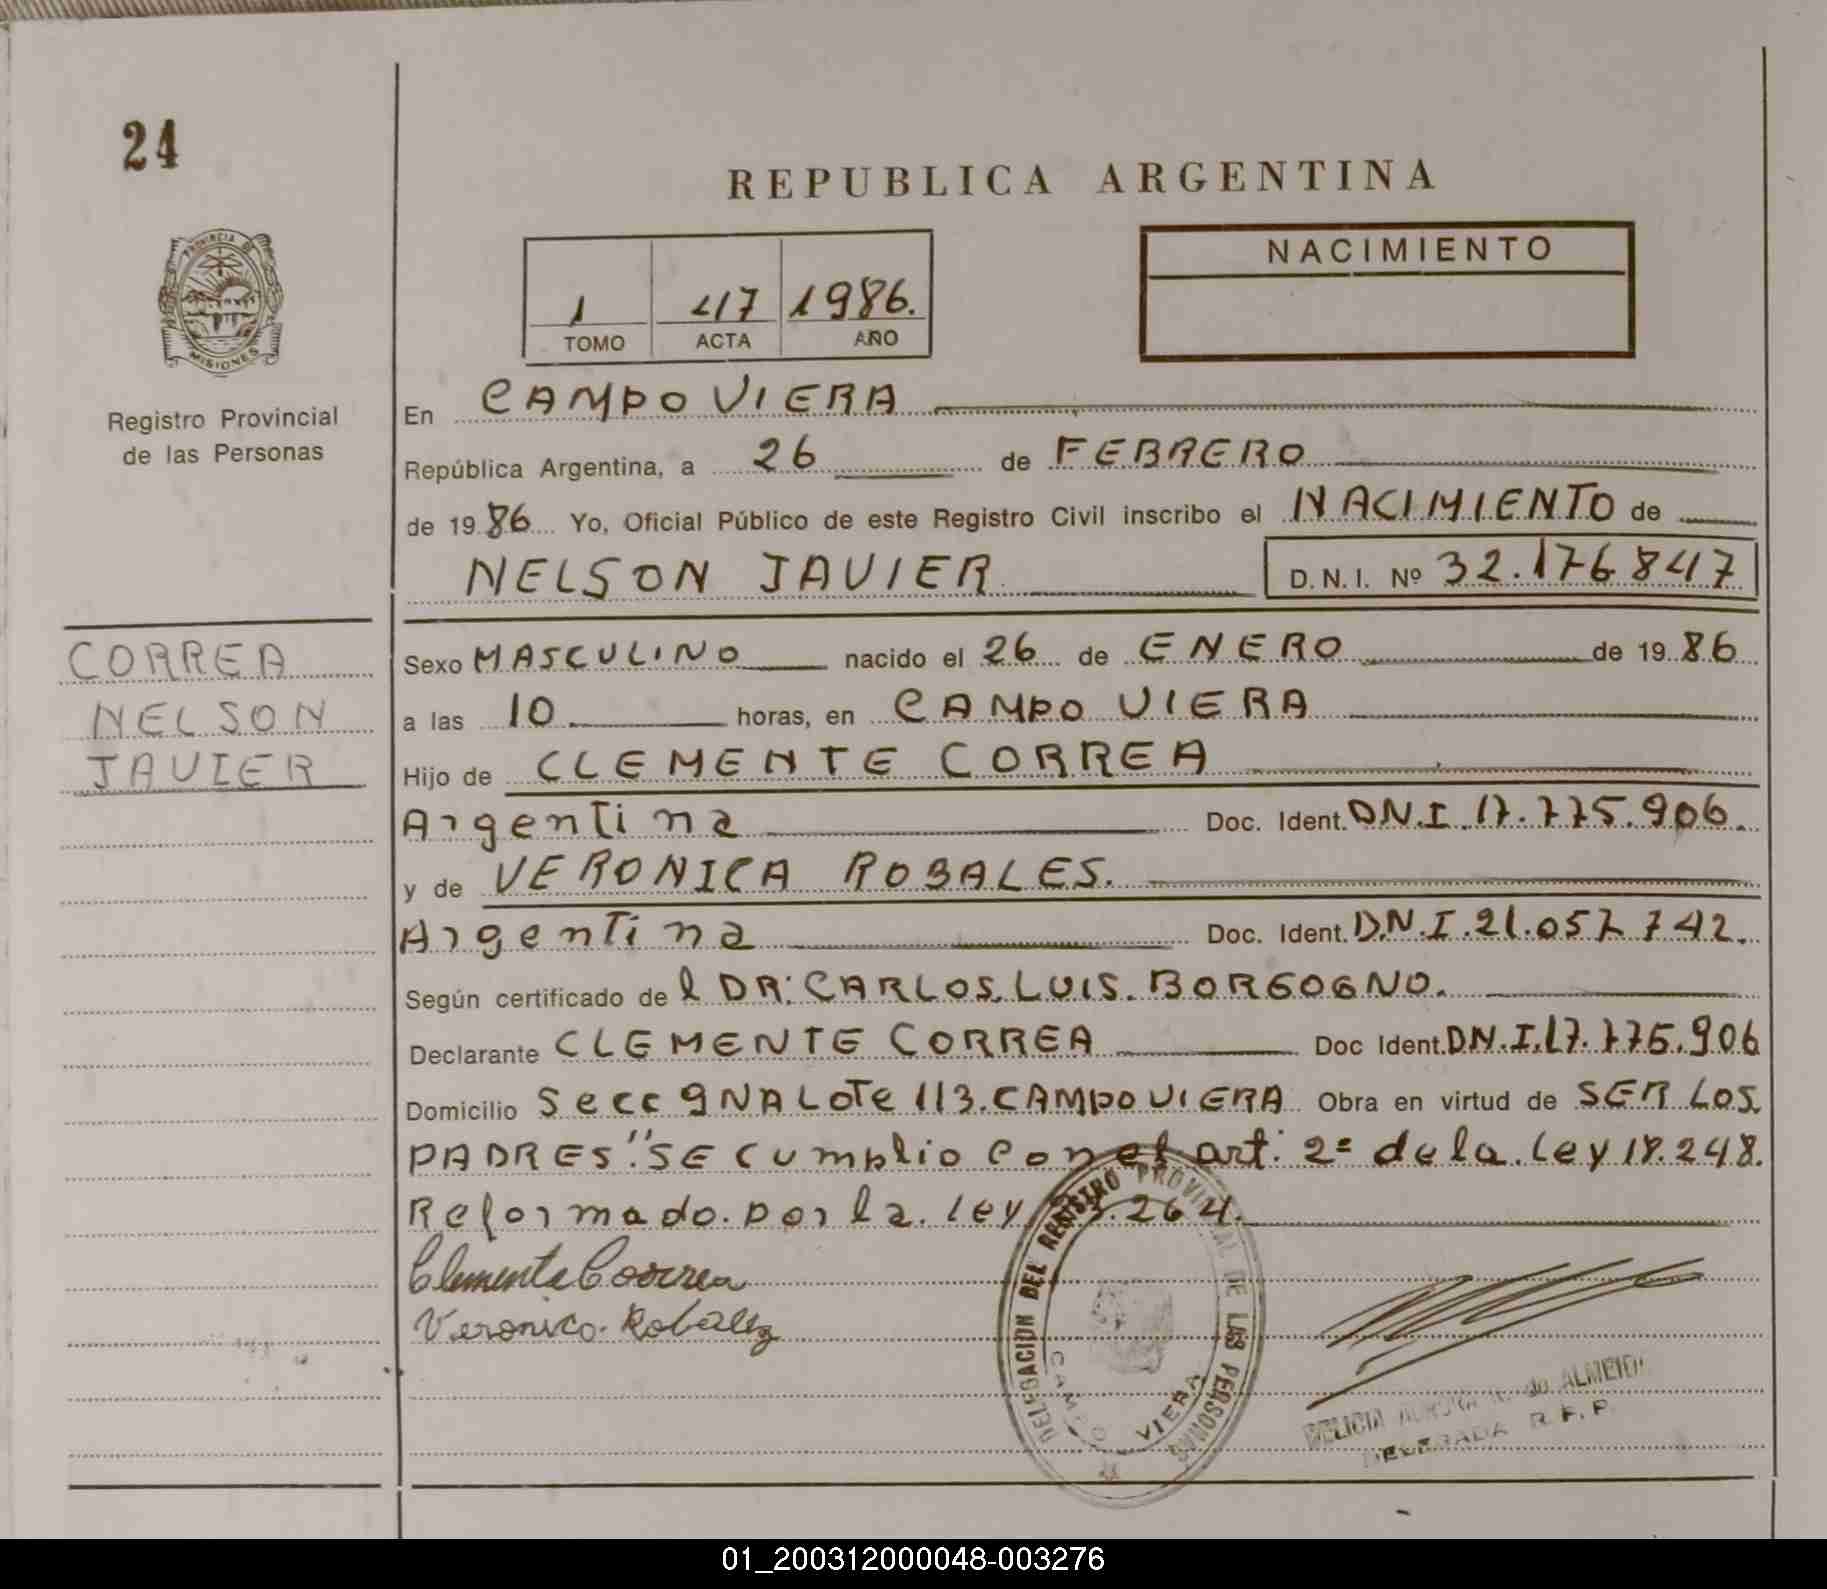 24
REPUBLICA ARGENTINA
PROVINCIA DE
MISIONES
NACIMIENTO
1 47 1986.
TOMO ACTA AÑO
Registro Provincial
de las Personas
En CAMPO VIERA
República Argentina, a 26 de FEBRERO
de 19 86 Yo, Oficial Público de este Registro Civil inscribo el NACIMIENTO de
NELSON JAVIER D.N.I. Nº 32.176847
CORREA
NELSON
JAVIER
Sexo MASCULINO nacido el 26 de ENERO de 19 86
a las 10 horas, en CAMPO VIERA
Hijo de CLEMENTE CORREA
Argentina Doc. Ident. D.N.I. 17.775.906.
y de VERONICA ROBALES.
Argentina Doc. Ident. D.N.I. 21.057 742.
Según certificado de l DR: CARLOS LUIS. BORGOGNO.
Declarante CLEMENTE CORREA Doc Ident. D.N.I. 17.775.906
Domicilio Secc 9NA LOTE 113. CAMPO VIERA Obra en virtud de SER LOS
PADRES". "SE Cumplio Con el art. 2º de la. Ley 18.248.
Reformado. por la. Ley 264.
Clemente Correa
Veronico. Robalez
DELEGACION DEL REGISTRO PROVINCIAL DE LAS PERSONAS
CAMPO VIERA
DELICIA AURORA de ALMEIDA
DELEGADA R. P. P.
01_200312000048-003276